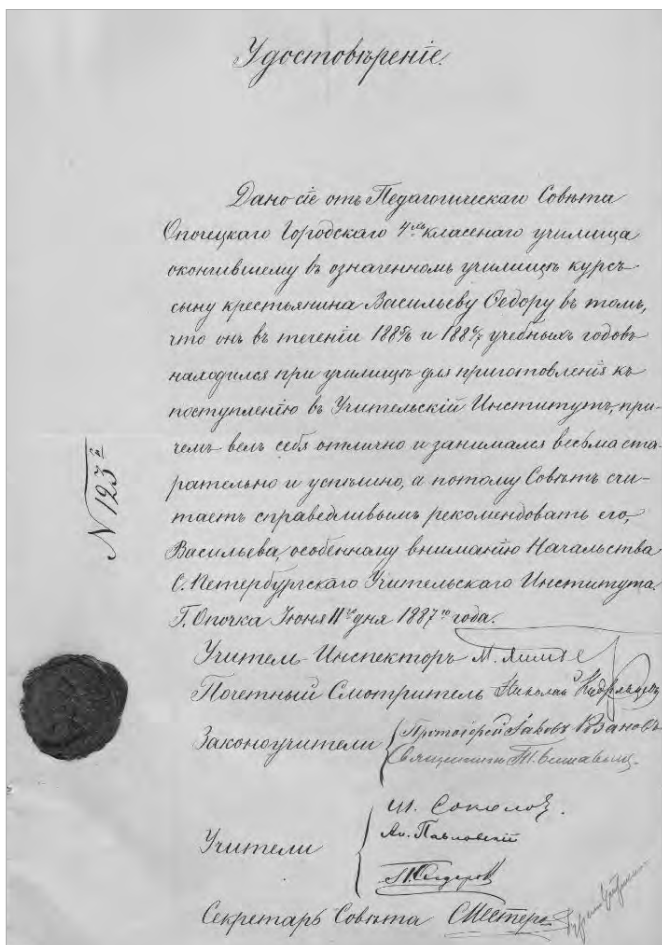 Удостовѣреніе.
Дано сіе отъ Педагогическаго Совѣта
Опочецкаго Городскаго 4хъ класснаго училища
окончившему въ означенномъ училищѣ курсъ
сыну крестьянина Васильеву Ѳедору въ томъ,
что онъ въ теченіи 1885/6 и 1886/7 учебныхъ годовъ
находился при училищѣ для приготовленія къ
поступленію въ Учительскій Институтъ, при-
чемъ велъ себя отлично и занимался весьма ста-
рательно и успѣшно, а потому Совѣтъ счи-
таетъ справедливымъ рекомендовать его,
Васильева, особенному вниманію Начальства
С. Петербургскаго Учительскаго Института.
Г. Опочка Іюня 11го дня 1887го года.
N 123й
Учитель-Инспекторъ М.
Почетный Смотритель Николай
Законоучители Протоіерей Іаковъ
Священникъ
И. Соколов.
Ал. Павловскій
Учители
П. Сидоров
Секретарь Совѣта